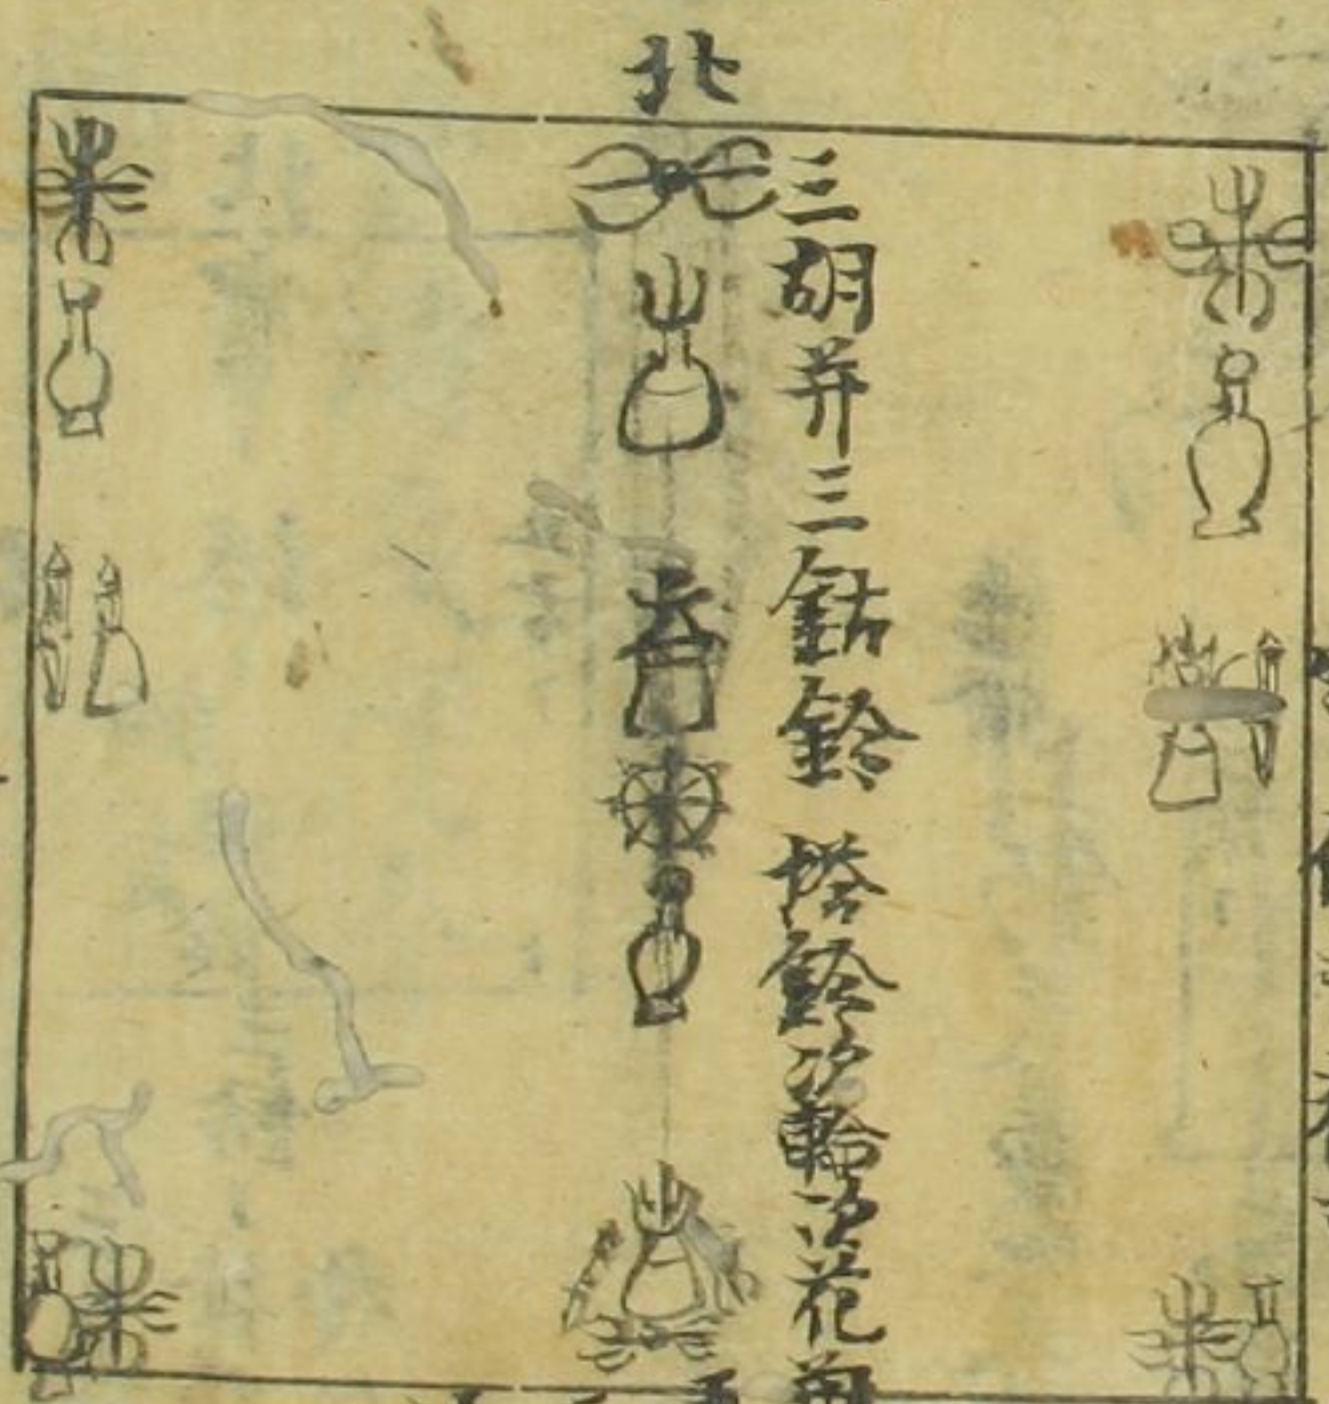 北
三胡并三鈷鈴 塔鈴次輪次花